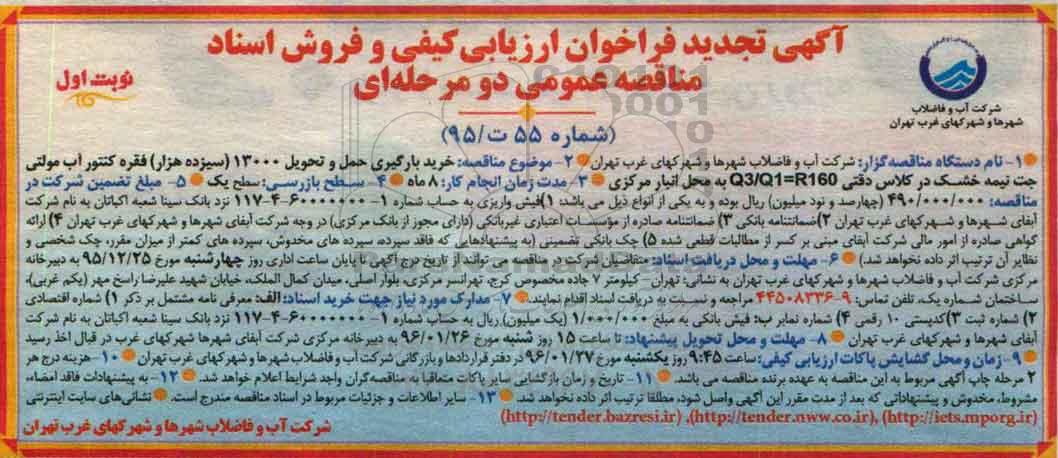 آگهی تجدید فراخوان ارزیابی کیفی و فروش اسناد
مناقصه عمومی دو مرحله‌ای
نوبت اول
شرکت آب و فاضلاب
شهرها و شهرکهای غرب تهران
(شماره ۵۵ ت/۹۵)
۱- نام دستگاه مناقصه‌گزار: شرکت آب و فاضلاب شهرها و شهرکهای غرب تهران ۲- موضوع مناقصه: خرید بارگیری حمل و تحویل ۱۳۰۰۰ (سیزده هزار) فقره کنتور آب مولتی
جت نیمه خشک در کلاس دقتی Q3/Q1=R160 به محل انبار مرکزی ۳- مدت زمان انجام کار: ۸ ماه ۴- سطح بازرسی: سطح یک ۵- مبلغ تضمین شرکت در
مناقصه: ۴۹۰/۰۰۰/۰۰۰ (چهارصد و نود میلیون) ریال بوده و به یکی از انواع ذیل می باشد: ۱)فیش واریزی به حساب شماره ۱-۶۰۰۰۰۰۰۰-۴-۱۱۷ نزد بانک سینا شعبه اکباتان به نام شرکت
آبفای شهرها و شهرکهای غرب تهران ۲)ضمانتنامه بانکی ۳) ضمانتنامه صادره از مؤسسات اعتباری غیربانکی (دارای مجوز از بانک مرکزی) در وجه شرکت آبفای شهرها و شهرکهای غرب تهران ۴) ارائه
گواهی صادره از امور مالی شرکت آبفای مبنی بر کسر از مطالبات قطعی شده ۵) چک بانکی تضمینی (به پیشنهادهایی که فاقد سپرده، سپرده های مخدوش، سپرده های کمتر از میزان مقرر، چک شخصی و
نظایر آن ترتیب اثر داده نخواهد شد.) ۶- مهلت و محل دریافت اسناد: متقاضیان شرکت در مناقصه می توانند از تاریخ درج آگهی تا پایان ساعت اداری روز چهارشنبه مورخ ۹۵/۱۲/۲۵ به دبیرخانه
مرکزی شرکت آب و فاضلاب شهرها و شهرکهای غرب تهران به نشانی: تهران- کیلومتر ۷ جاده مخصوص کرج، تهرانسر مرکزی، بلوار اصلی، میدان کمال الملک، خیابان شهید علیرضا راسخ مهر (یکم غربی)،
ساختمان شماره یک، تلفن تماس: ۹-۴۴۵۰۸۳۳۶ مراجعه و نسبت به دریافت اسناد اقدام نمایند. ۷- مدارک مورد نیاز جهت خرید اسناد: الف: معرفی نامه مشتمل بر ذکر ۱) شماره اقتصادی
۲) شماره ثبت ۳)کدپستی ۱۰ رقمی ۴) شماره نمابر ب: فیش بانکی به مبلغ ۱/۰۰۰/۰۰۰ (یک میلیون) ریال به حساب شماره ۱-۶۰۰۰۰۰۰۰-۴-۱۱۷ نزد بانک سینا شعبه اکباتان به نام شرکت
آبفای شهرها و شهرکهای غرب تهران ۸- مهلت و محل تحویل پیشنهاد: تا ساعت ۱۵ روز شنبه مورخ ۹۶/۰۱/۲۶ به دبیرخانه مرکزی شرکت آبفای شهرها و شهرکهای غرب در قبال اخذ رسید
۹- زمان و محل گشایش پاکات ارزیابی کیفی: ساعت ۹:۴۵ روز یکشنبه مورخ ۹۶/۰۱/۲۷ در دفتر قراردادها و بازرگانی شرکت آب و فاضلاب شهرها و شهرکهای غرب تهران ۱۰- هزینه درج هر
۲ مرحله چاپ آگهی مربوط به این مناقصه به عهده برنده مناقصه می باشد. ۱۱- تاریخ و زمان بازگشایی سایر پاکات متعاقبا به مناقصه‌گران واجد شرایط اعلام خواهد شد. ۱۲- به پیشنهادات فاقد امضاء،
مشروط، مخدوش و پیشنهاداتی که بعد از مدت مقرر این آگهی واصل شود، مطلقا ترتیب اثر داده نخواهد شد. ۱۳- سایر اطلاعات و جزئیات مربوط در اسناد مناقصه مندرج است. نشانی‌های سایت اینترنتی
(http://tender.bazresi.ir) ,(http://tender.nww.co.ir), (http://iets.mporg.ir)
شرکت آب و فاضلاب شهرها و شهرکهای غرب تهران